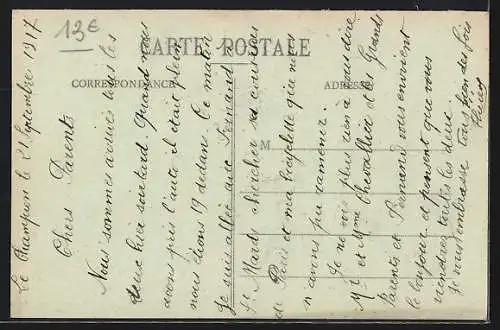 13€
CARTE POSTALE
CORRESPONDANCE
ADRESSE
M
Le Champion le 21 Septembre 1917
Chers Parents
Nous sommes arrivés tous les
deux hier soir tard. Quand nous
avons pris l'auto il était plein
nous étions 19 dedans. Ce matin
Je suis allée avec Fernand à
St Mards chercher la caisse
de Paris et ma bicyclette que nous
n'avons pu ramener
Je ne vois plus rien à vous dire
Mr et Mme Chevallier les Grands
Parents et Fernand vous envoient
le bonjour et pensent que vous
viendrez toutes les deux
Je vous embrasse tous bien des fois